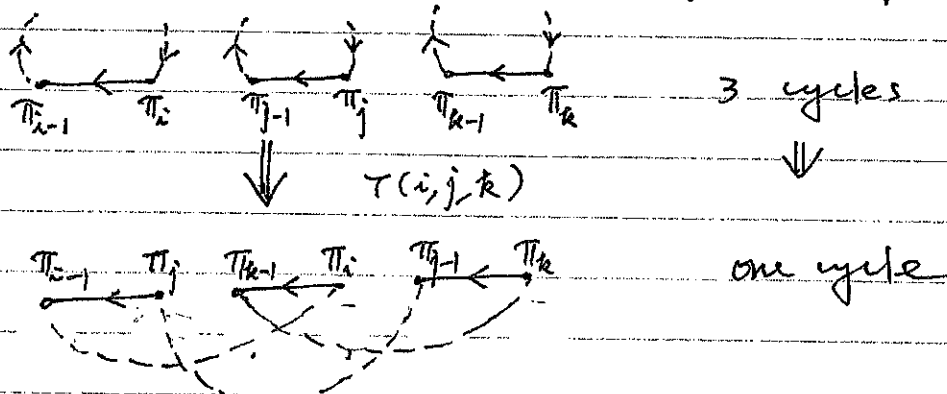 π_{i-1} π_i π_{j-1} π_j π_{k-1} π_k 3 cycles
⇓ τ(i, j, k) ⇓
π_{i-1} π_j π_{k-1} π_i π_{j-1} π_k one cycle